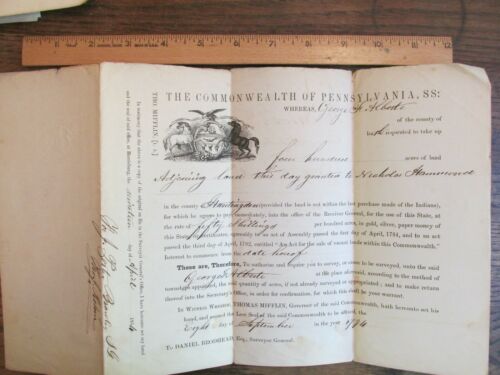 1 2 3 4 5 6 7 8 9 10 11 12
THE COMMONWEALTH OF PENNSYLVANIA, SS:
WHEREAS, George
of the county of
requested to take up
four hundred acres of land
Adjoining land this day granted to Nicholas
in the county Huntingdon (provided the land is not within the last purchase made of the Indians),
for which he agrees to pay immediately, into the office of the Receiver General, for the use of this State, at
the rate of fifty Shillings per hundred acres, in gold, silver, paper money of
this State, certificates, agreeably to an act of Assembly passed the first day of April, 1784, and to an act
passed the third day of April, 1792, entitled "An Act for the sale of vacant lands within this Commonwealth."
Interest to commence from the date hereof
These are, Therefore, To authorize and require you to survey, or cause to be surveyed, unto the said
George at the place aforesaid, according to the method of
townships appointed, the said quantity of acres, if not already surveyed or appropriated; and to make return
thereof into the Secretary's Office, in order for confirmation, for which this shall be your warrant.
IN WITNESS WHEREOF, THOMAS MIFFLIN, Governor of the said Commonwealth, hath hereunto set his
hand, and caused the Less Seal of the said Commonwealth to be affixed, the
Eight day of September in the year 1794
To DANIEL BRODHEAD, Esq., Surveyor General.
THO. MIFFLIN, [L.S.]
In testimony that the above is a copy of the original
and the seal of said office, at Harrisburg, the
day of April